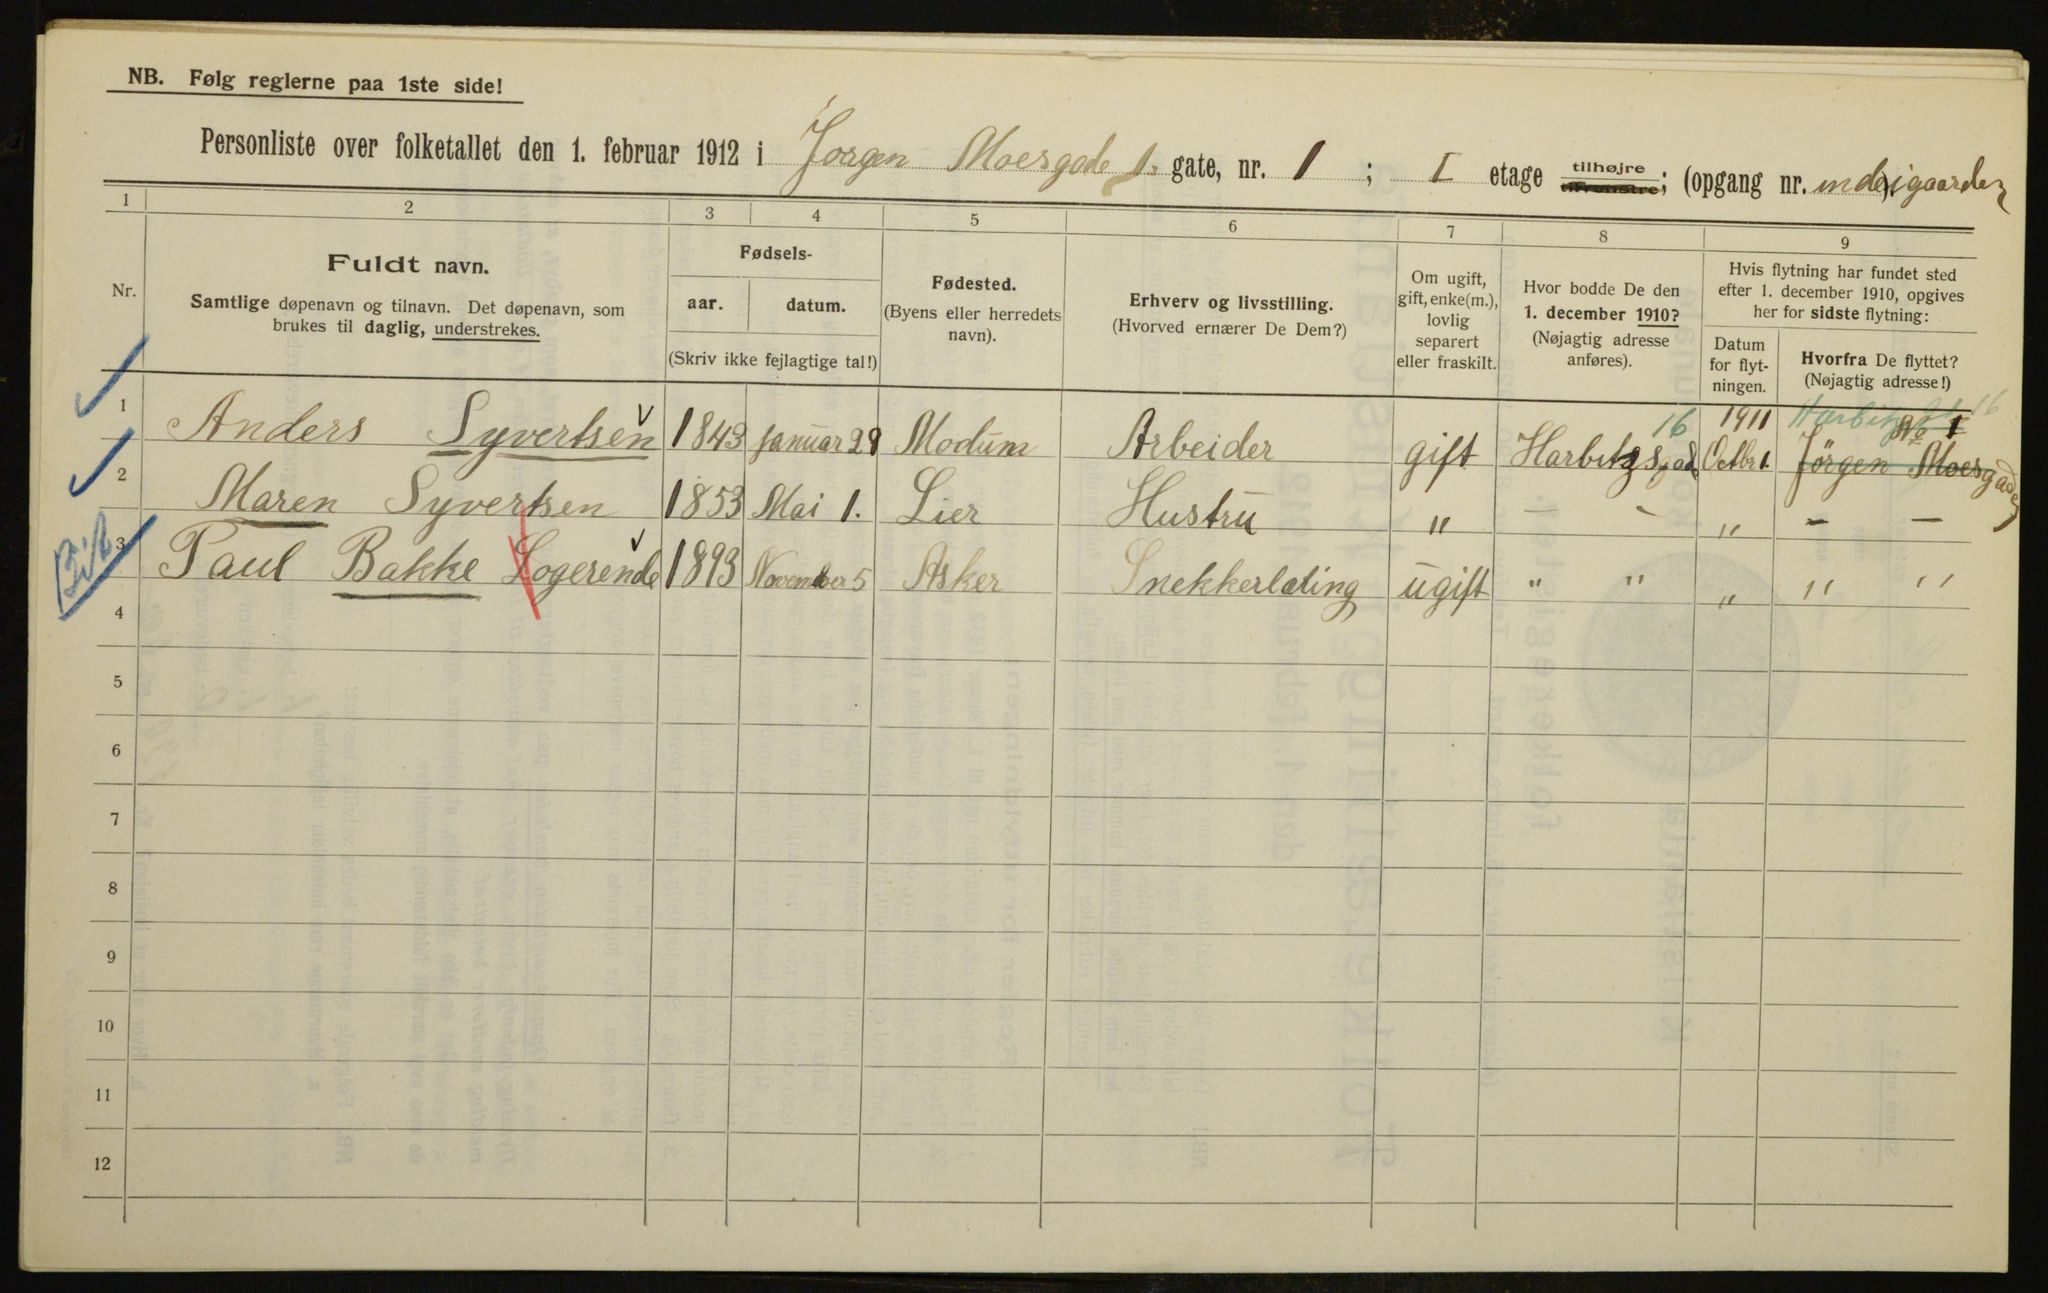 NB. Følg reglerne paa 1ste side!
Personliste over folketallet den 1. februar 1912 i Jørgen Moesgade 1. gate, nr. 1 ; I etage tilhøjre tilvenstre; (opgang nr. inde i gaarden).
1 2 3 4 5 6 7 8 9
Nr.
Fuldt navn.
Samtlige døpenavn og tilnavn. Det døpenavn, som
brukes til daglig, understrekes.
Fødsels-
aar. datum.
(Skriv ikke fejlagtige tal!)
Fødested.
(Byens eller herredets
navn).
Erhverv og livsstilling.
(Hvorved ernærer De Dem?)
Om ugift,
gift, enke(m.),
lovlig
separert
eller fraskilt.
Hvor bodde De den
1. december 1910?
(Nøjagtig adresse
anføres).
Hvis flytning har fundet sted
efter 1. december 1910, opgives
her for sidste flytning:
Datum
for flyt-
ningen.
Hvorfra De flyttet?
(Nøjagtig adresse!)
16 1911 Harbitzgt 16
No 1
1 Anders Syvertsen 1843 januar 28 Modum Arbeider gift Harbitzsgad Octbr 1. Jörgen Moesgade
2 Maren Syvertsen 1853 Mai 1. Lier Hustru " - - " - -
3 Paul Bakke Logerende 1893 November 5 Asker Snekkerlæling ugift " " " " "
4
5
6
7
8
9
10
11
12